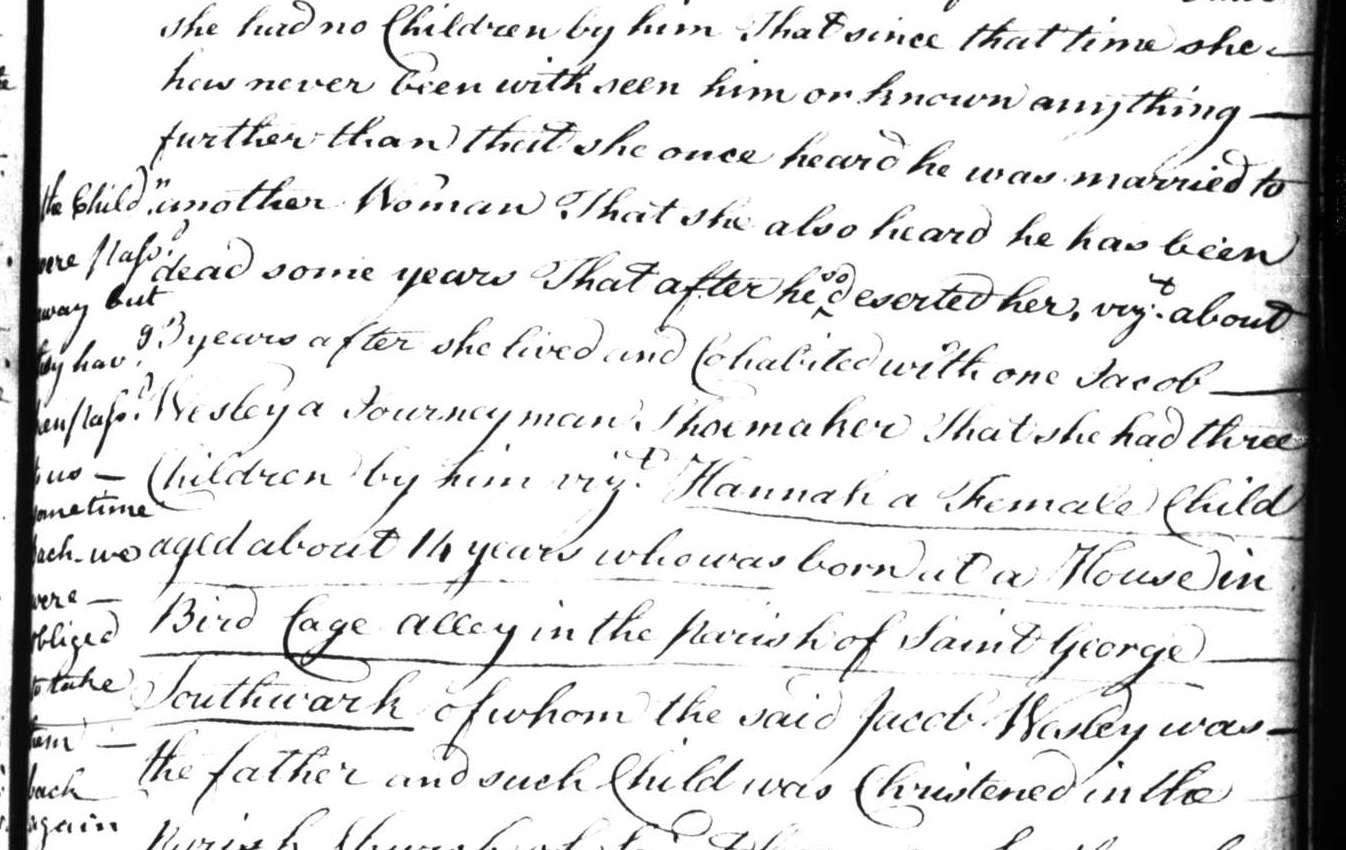 she had no Children by him That since that time she
has never been with seen him or known anything
further than that she once heard he was married to
another Woman That she also heard he has been
dead some years That after he so deserted her, vizt. about
3 years after she lived and Cohabited with one Jacob
Wesley a Journeyman Shoemaker That she had three
Children by him vizt. Hannah a Female Child
aged about 14 years who was born at a House in
Bird Cage alley in the Parish of Saint George
Southwark of whom the said Jacob Wesley was
the father and such Child was Christened in the
Parish Church
the Child
were passd
away but
they have
been passd
to us
sometime
back. we
were
obliged
to take
them
back
again